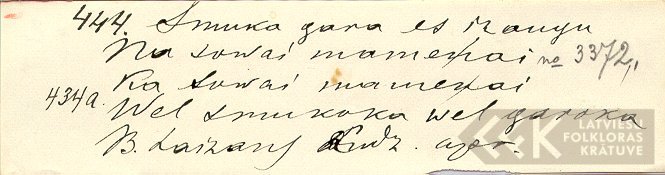 444. Smuka gara es izaugu
Na sowai mamenai no 3372,
Ka sowai mamenai
434a. Wel smukoka wel garoka
B. Ludz. apr.
LATVIEŠU
FOLKLORAS
KRĀTUVE